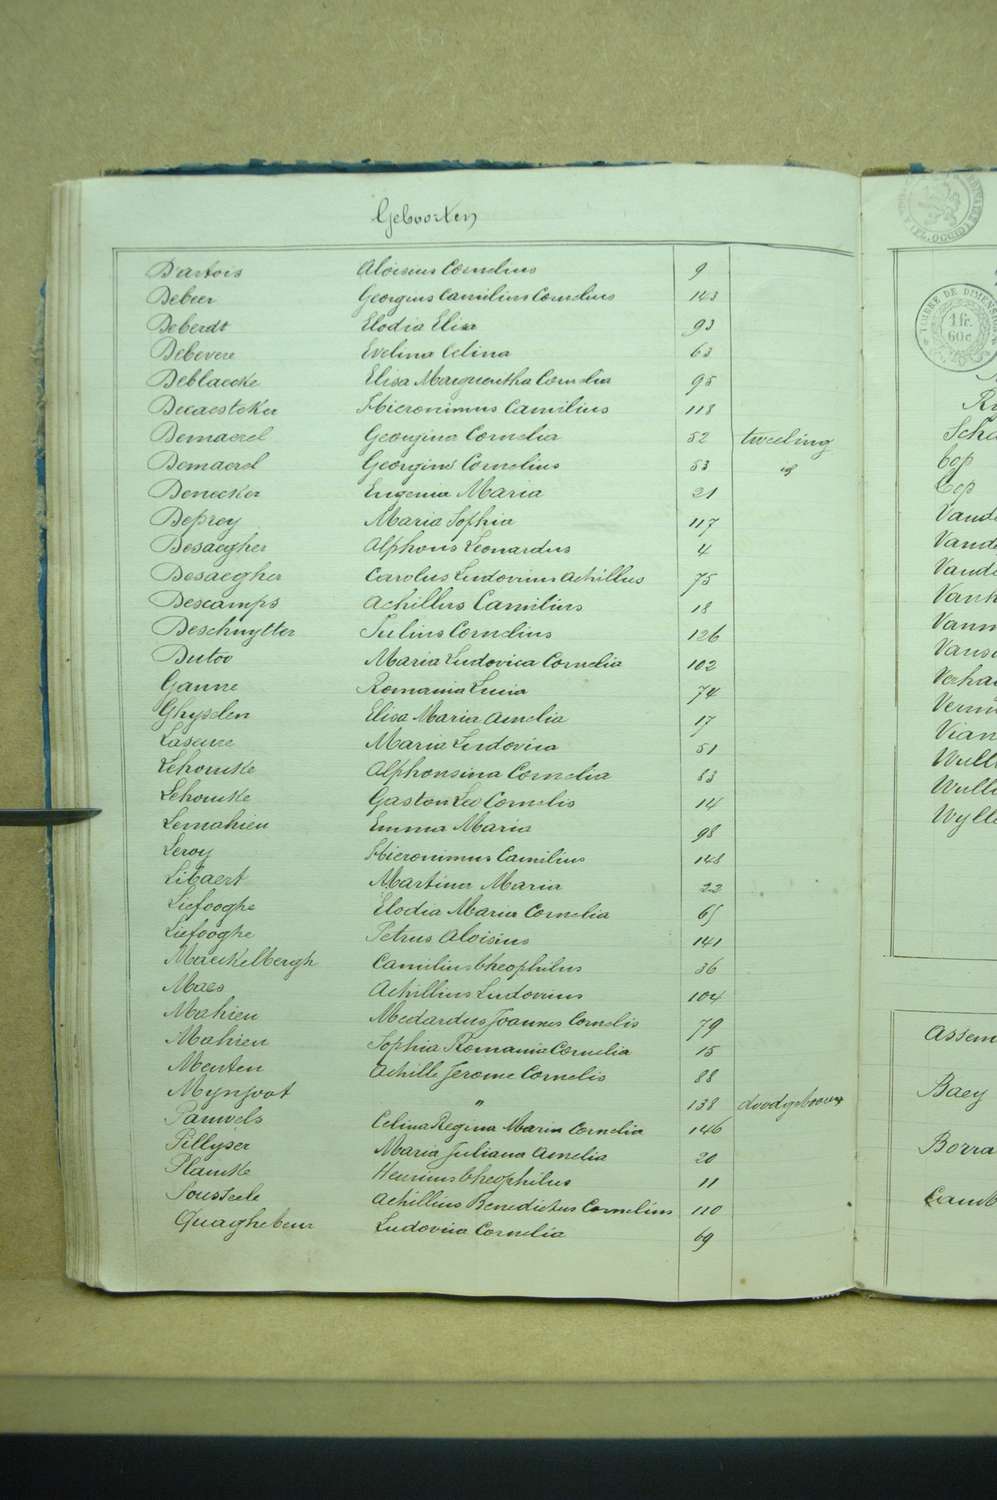 Geboorten
Dartois Aloisius Cornelius 9
Debeer Georgius Camilius Cornelius 143
Deberdt Elodia Elisa 93
Debevere Evelina Celina 63
Deblaecke Elisa Margueritha Cornelia 95
Decaesteker Hieronimus Camilius 118
Demaerel Georgina Cornelia 52 tweeling
Demaerel Georgius Cornelius 53 id
Denecker Eugenia Maria 21
Deprey Maria Sophia 117
Desaegher Alphons Leonardus 4
Desaegher Carolus Ludovicus Achillus 75
Descamps Achillus Camilius 18
Deschuytter Julius Cornelius 126
Dutoo Maria Ludovica Cornelia 102
Ganne Romania Lucia 74
Ghyselen Elisa Maria Amelia 17
Maria Ludovica 51
Lehoucke Alphonsina Cornelia 83
Lehoucke Gaston Leo Cornelis 14
Lemahieu Emma Maria 98
Leroy Hieronimus Camilius 148
Libaert Martina Maria 22
Liefooghe Elodia Maria Cornelia 65
Liefooghe Petrus Aloisius 141
Maeckelbergh Camilius Theophilus 36
Maes Achillius Ludovicus 104
Mahieu Medardus Joannes Cornelis 79
Mahieu Sophia Romania Cornelia 15
Menten Achille Jerome Cornelis 88
Mynsoot " 138 doodgebooren
Pauwels Celina Regina Maria Cornelia 146
Pillyser Maria Juliana Amelia 20
Plancke Henricus Theophilus 11
Souxdeele Achillius Benedictus Cornelius 110
Quaghebeur Ludovica Cornelia 69
TIMBRE DE DIMENSION
1 fr.
60c
Scha
Cop
Cop
Vand
Vand
Vand
Vanh
Vanm
Vans
Verha
Verm
Vian
Wull
Wull
Wyll
Assem
Baey
Borra
Camb